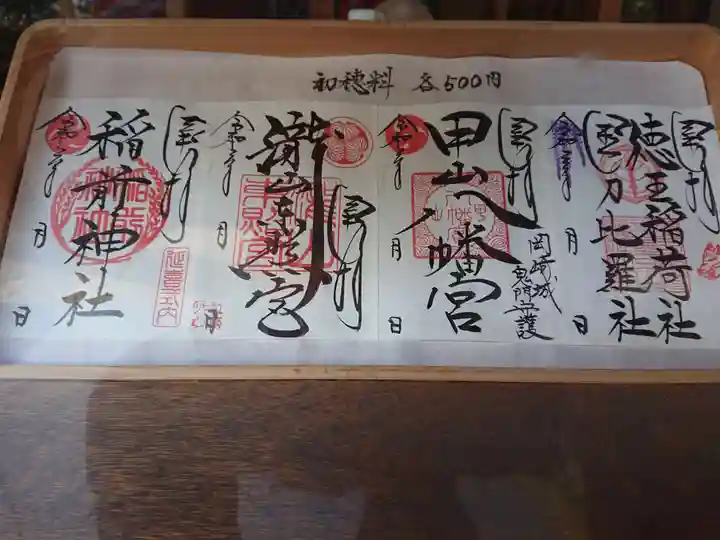 初穂料 各500円
奉拝
徳王稲荷社
金刀比羅社
令和 年
月
日
奉拝
甲山八幡宮
岡崎城
鬼門守護
令和 年
月
日
奉拝
瀧山東照宮
令和 年
月
日
奉拝
稲前神社
延喜式内
令和 年
月
日